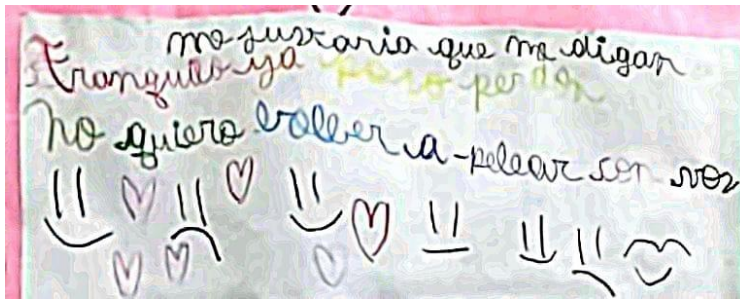 me gustaria que me digan
Tranquilo ya paso perdon
no quiero volver a pelear con vos